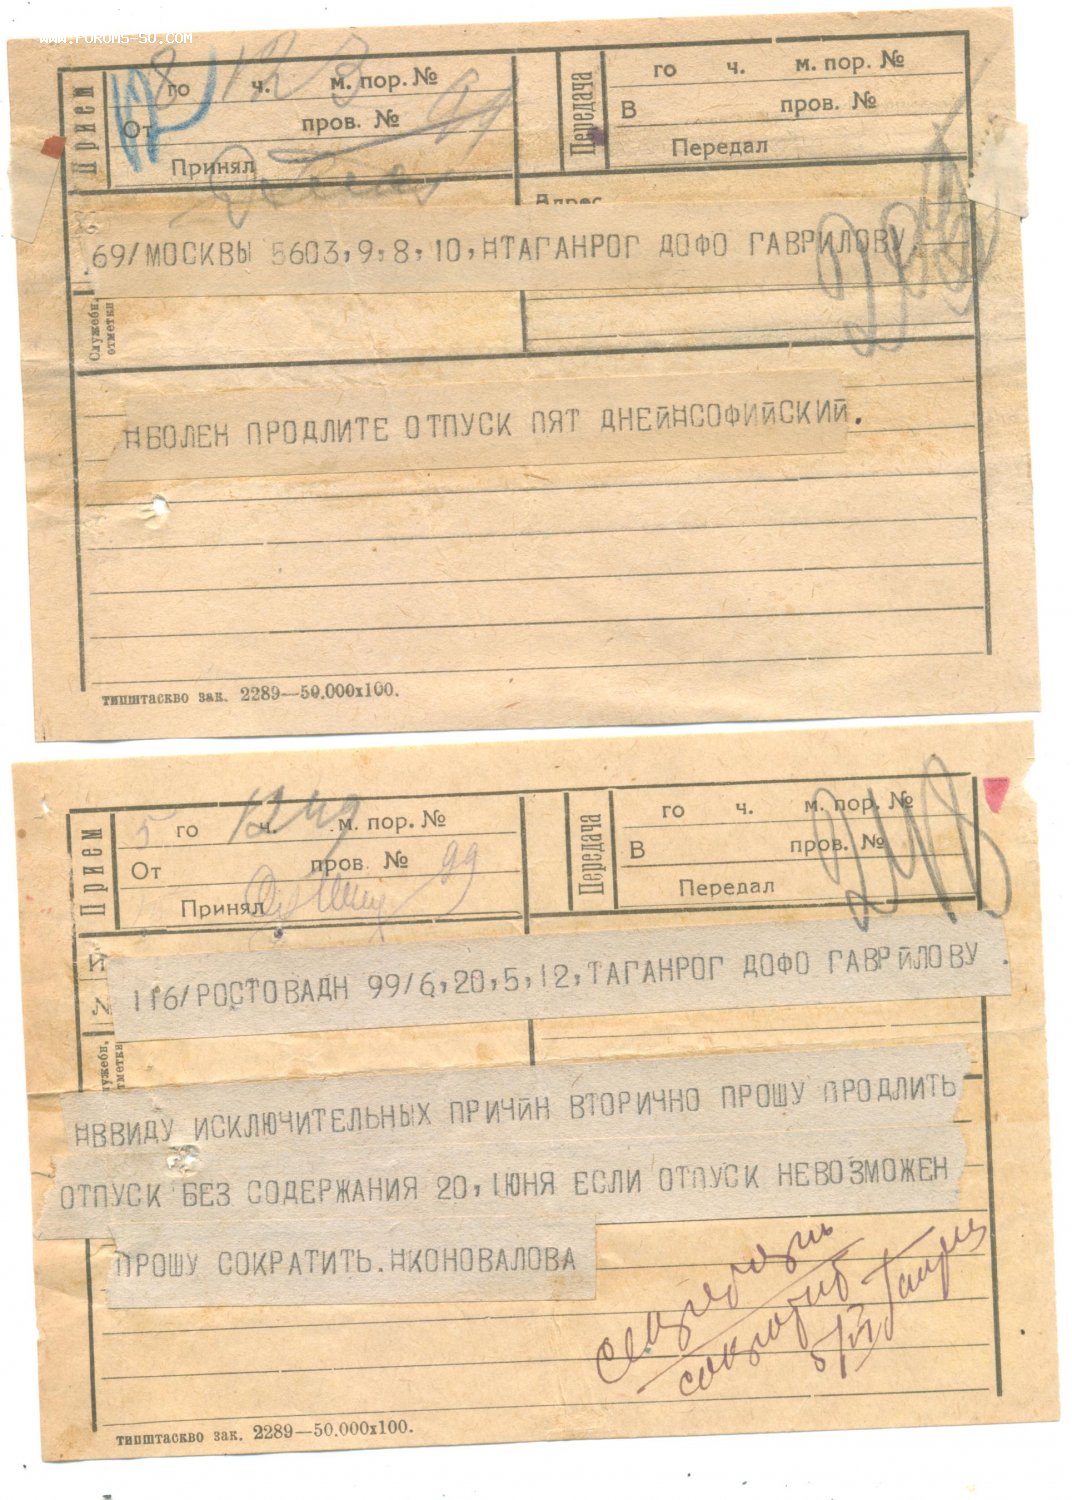 WWW.FORUMS-SU.COM
Прием
8 го 12 ч. 3 м. пор. №
От пров. № 99
Принял
Передача
го ч. м. пор. №
В пров. №
Передал
Адрес
69/МОСКВЫ 5603,9,8,10,НТАГАНРОГ ДОФО ГАВРИЛОВУ.
Служебн. отметки
НБОЛЕН ПРОДЛИТЕ ОТПУСК ПЯТ ДНЕЙНСОФИЙСКИЙ.
типштаскво зак. 2289—50.000х100.
Прием
5 го 12 ч. 49 м. пор. №
От пров. № 99
Принял
Передача
го ч. м. пор. №
В пров. №
Передал
116/РОСТОВАДН 99/6,20,5,12,ТАГАНРОГ ДОФО ГАВРИЛОВУ.
Служебн. отметки
НВВИДУ ИСКЛЮЧИТЕЛЬНЫХ ПРИЧИН ВТОРИЧНО ПРОШУ ПРОДЛИТЬ
ОТПУСК БЕЗ СОДЕРЖАНИЯ 20,ІЮНЯ ЕСЛИ ОТПУСК НЕВОЗМОЖЕН
ПРОШУ СОКРАТИТЬ.НКОНОВАЛОВА
сократить
5/VI
типштаскво зак. 2289—50.000х100.